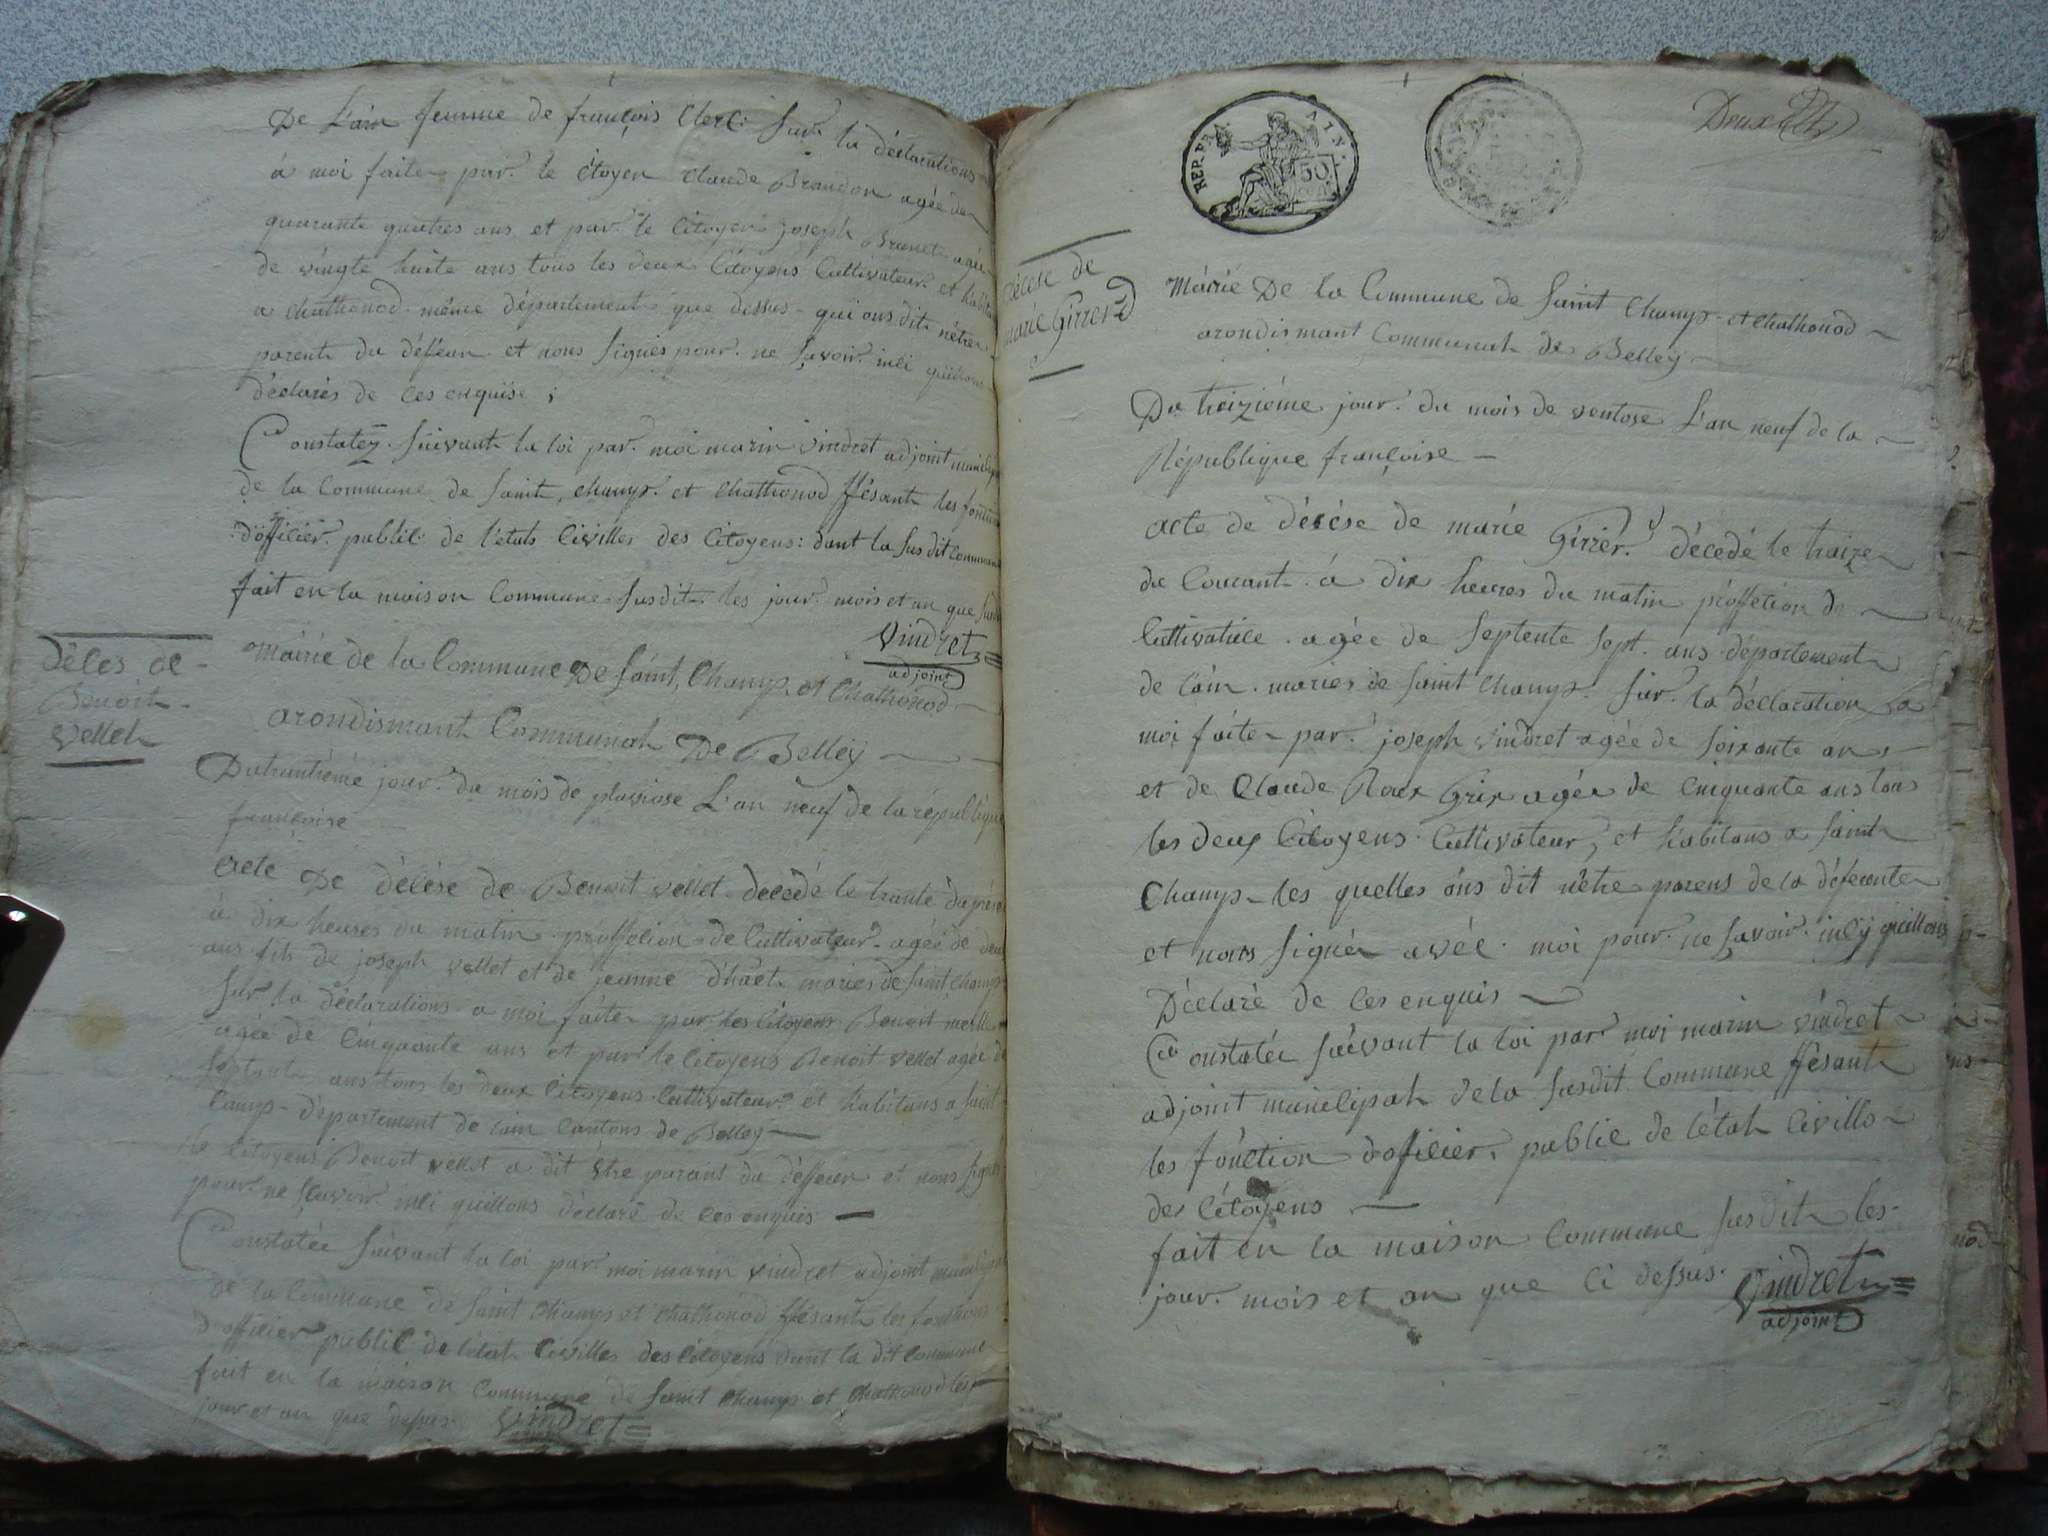 De L'ain femme de françois Clerc: sur la déclarations
á moi faite par le Citoyen Claude Brandon agée de
quarante quatres ans et par le Citoyen joseph Brunet agée
de vingte huite ans tous les deux Citoyens Cultivateur et habit
a Chathonod même département que dessus - qui ons dit nêtre
parent du défeun et nons signés pour ne savoir
déclarés de ces enquise ;
Constatéz suivant la loi par moi marin vindret adjoint municip
de la Commune de saint, champs et Chathonod ffésant les fontion
d'officier public de l'etats Civilles des Citoyens: dant la susdit Commune
fait en la maison Commune susdit les jour mois et an que sus
Vindret
adjoint
Déces de
Benoit
vellet
Mairie de la Commune De saint, Champs et Chathonod
arondismant Communah De Belley
Du trantiéme jour du mois de pluviose L'an neuf de la républiqu
françoise
acte De décése de Benoit vellet décédé le trante du prés
á dix heures du matin proffétion de Cultivateur agée de deux
ans fils de joseph vellet et de jeanne maries de saint champs
sur la déclarations a moi faite par les Citoyens Benoit
agée de Cinquante ans et par le Citoyens Benoit vellet agée de
septante ans tous les deux Citoyens Cultivateur et habitans a saint
Camps département de l'ain Cantons de Belley
le Citoyens Benoit vellet a dit être parant du déffeun et nons signé
pour ne scavoir inli quillons déclaré de ces enquis
Constatée suivant la loi par moi marin vindret adjoint municip
de la Commune de saint Champs et Chathonod ffésant les fonctions
d'officier public de l'état Civilles des Citoyens dant la dit Commune
fait en la maison Commune de saint Champs et Chathonod les
jour et an que dessus Vindret
REP. FRA. AIN.
50
décese de
marie Girrerd
Mairie De la Commune de saint Champs et Chathonod
arondismant Communah de Belley
Du treizième jour du mois de ventose L'an neuf de la
République françoise
acte de décése de marie Girrer décedé le traize
du Courant á dix heures du matin proffétion de
Cultivatrice agée de septente sept ans département
de l'ain maries de saint Champs sur la déclaration a
moi faite par joseph vindret agée de soixante ans
et de Claude Roux Grix agée de Cinquante ans tous
les deux Citoyens Cultivateur, et habitans a saint
Champs les quelles ons dit nêtre parens de la défeunte
et nons signée avec moi pour ne savoir inly quillons
Déclaré de ces enquis
Constatée suivant la loi par moi marin vindret
adjoint municipah de la susdit Commune ffésant
les fonction d'oficier public de l'étah Civille
des Citoyens
fait en la maison Commune susdit les
jour mois et an que ci dessus. Vindret
adjoint